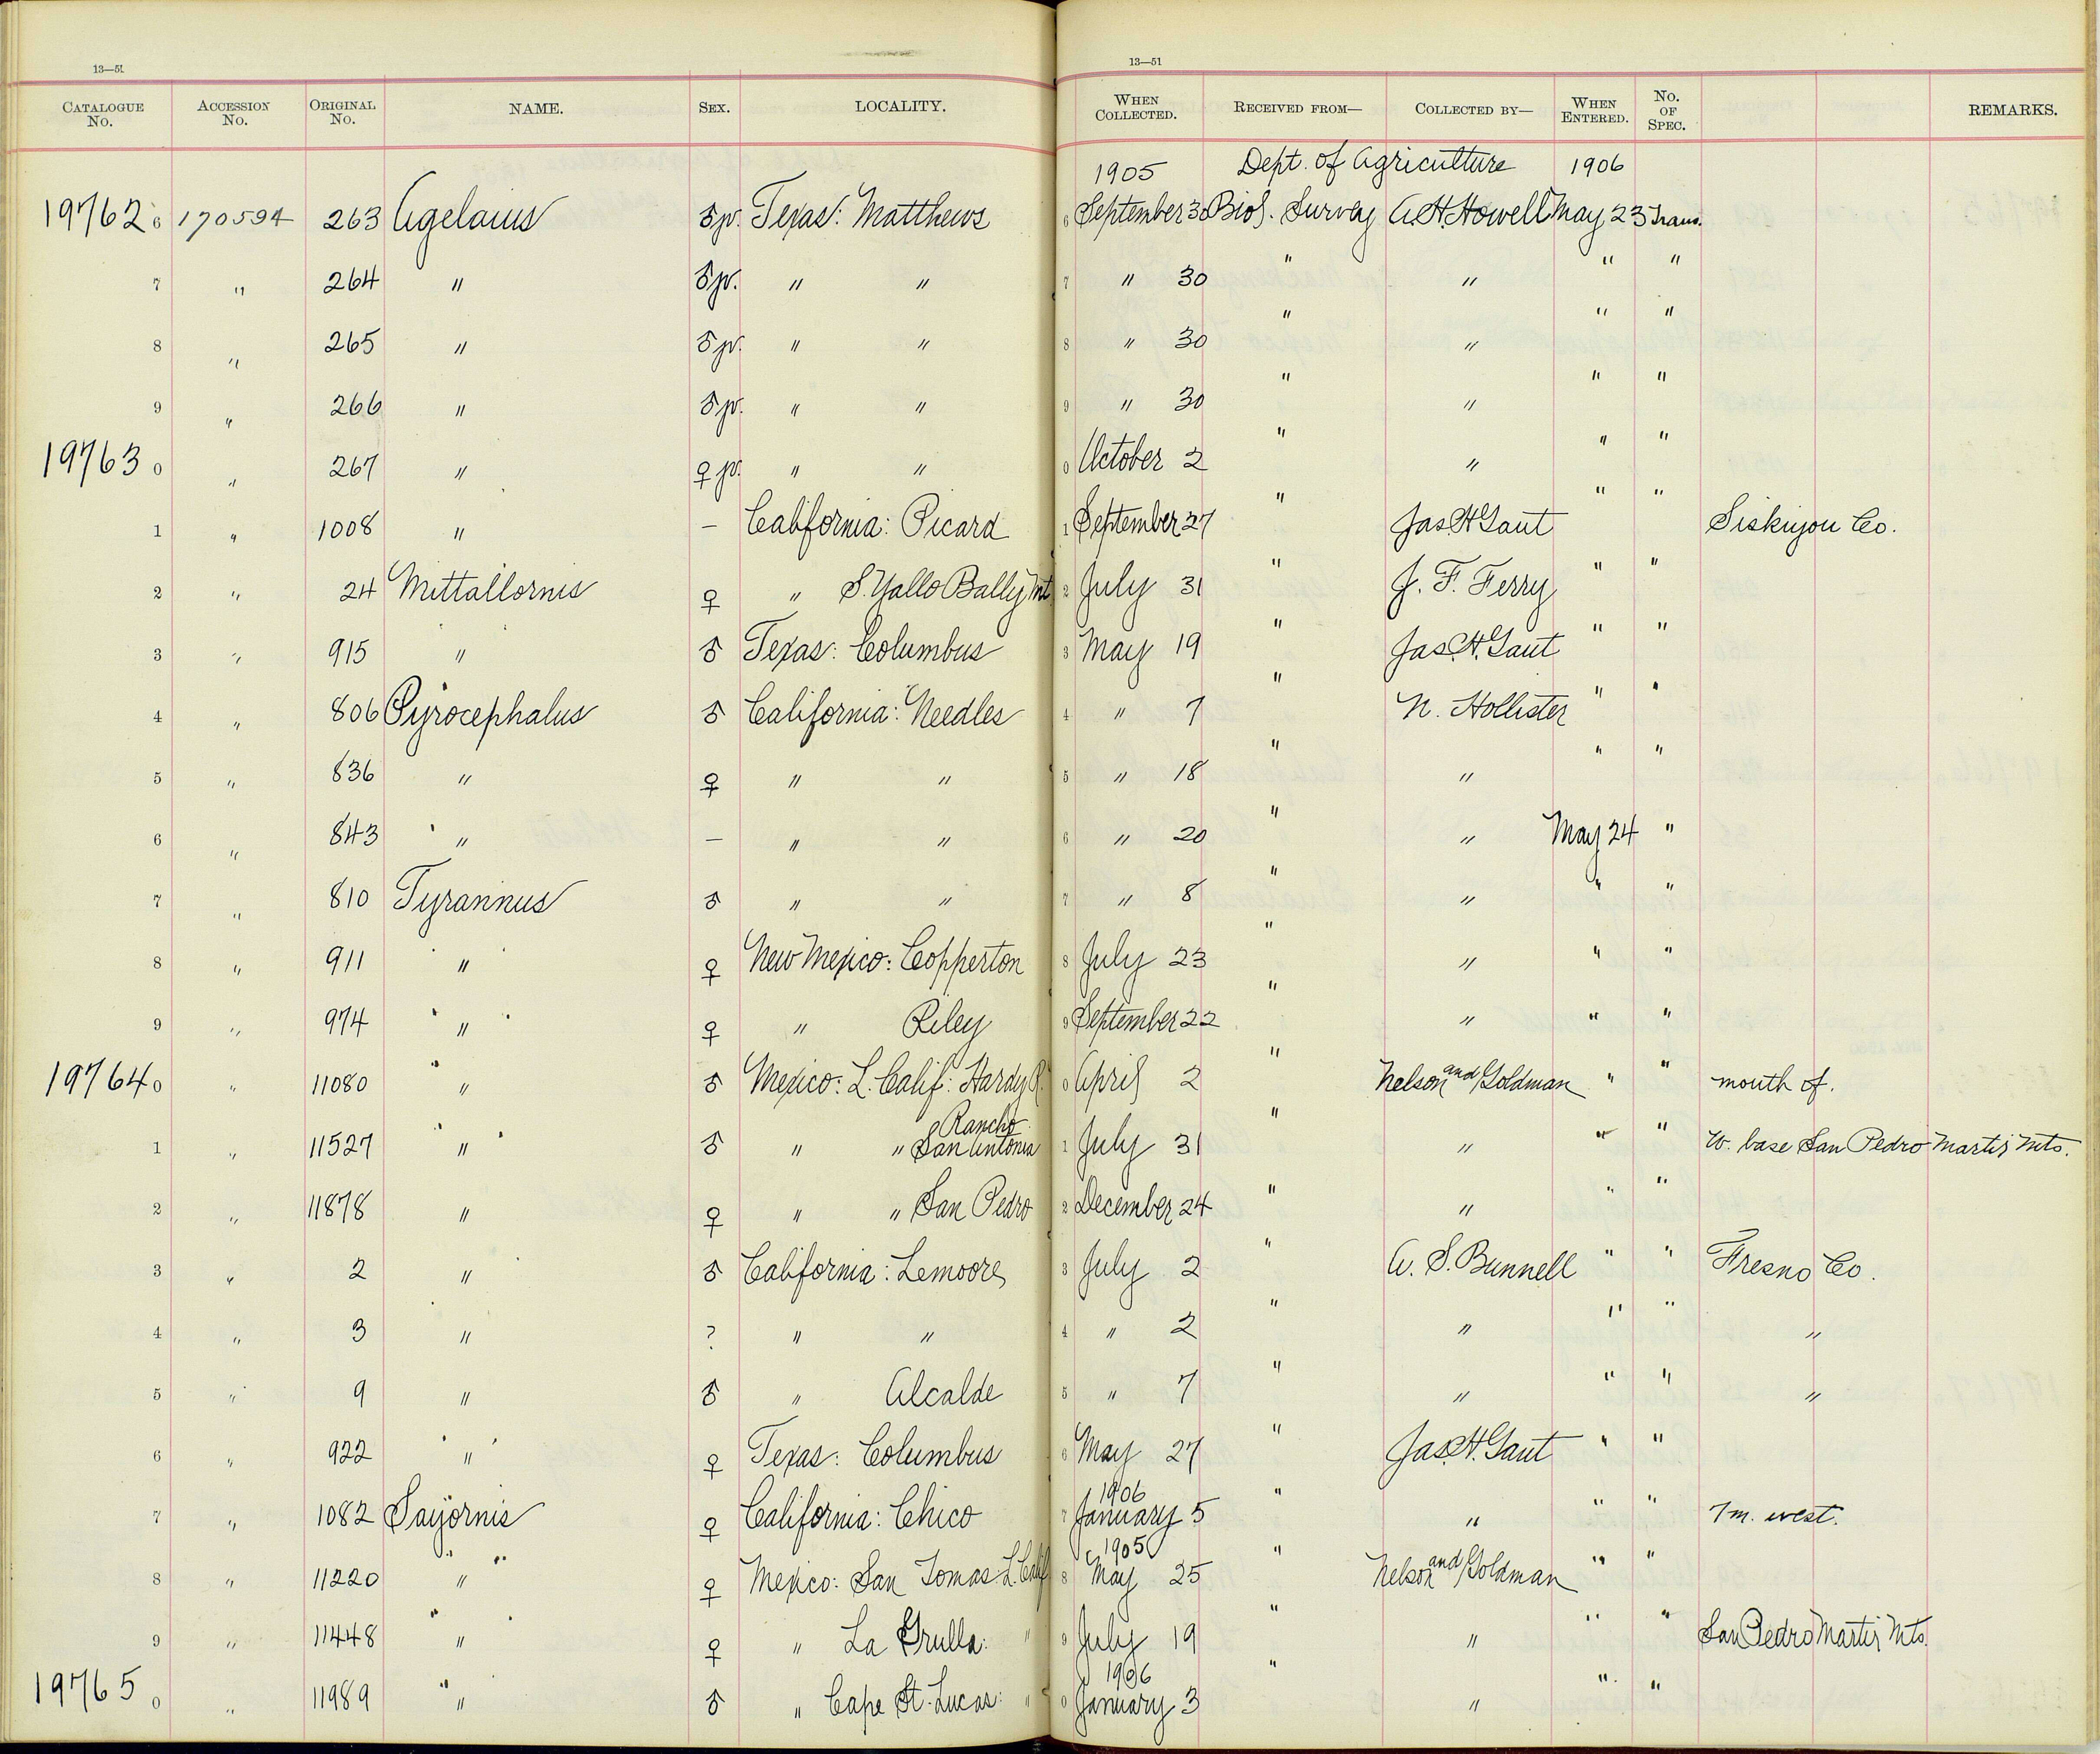 13—51 13—51
CATALOGUE No. ACCESSION No. ORIGINAL No. NAME. SEX. LOCALITY. WHEN COLLECTED. RECEIVED FROM— COLLECTED BY— WHEN ENTERED. No. OF SPEC. REMARKS.
1905 Dept. of Agriculture 1906
19762 6 170594 263 Agelaius ♂ jv. Texas: Matthews 6 September 30 Biol. Survey A.H. Howell May 23 Trans.
7 " 264 " ♂ jv. " " 7 " 30 " " " "
8 " 265 " ♂ jv. " " 8 " 30 " " " "
9 " 266 " ♂ jv. " " 9 " 30 " " " "
19763 0 " 267 " ♀ jv. " " 0 October 2 " " " "
1 " 1008 " — California: Picard 1 September 27 " Jas. H. Gaut " " Siskiyou Co.
2 " 24 Nuttallornis ♀ " S. Yallo Bally Mt 2 July 31 " J. F. Ferry " "
3 " 915 " ♂ Texas: Columbus 3 May 19 " Jas. H. Gaut " "
4 " 806 Pyrocephalus ♂ California: Needles 4 " 7 " N. Hollister " "
5 " 836 " ♀ " " 5 " 18 " " " "
6 " 843 " — " " 6 " 20 " " May 24 "
7 " 810 Tyrannus ♂ " " 7 " 8 " " " "
8 " 911 " ♀ New Mexico: Copperton 8 July 23 " " " "
9 " 974 " ♀ " Riley 9 September 22 " " " "
19764 0 " 11080 " ♂ Mexico: L. Calif: Hardy R. 0 April 2 " Nelson and Goldman " " mouth of.
1 " 11527 " ♂ " " Rancho San Antonia 1 July 31 " " " " W. base San Pedro Martir Mts.
2 " 11878 " ♀ " " San Pedro 2 December 24 " " " "
3 " 2 " ♂ California: Lemoore 3 July 2 " A. S. Bunnell " " Fresno Co.
4 " 3 " ? " " 4 " 2 " " " " "
5 " 9 " ♂ " Alcalde 5 " 7 " " " " "
6 " 922 " ♀ Texas: Columbus 6 May 27 " Jas. H. Gaut " "
1906
7 " 1082 Sayornis ♀ California: Chico 7 January 5 " " " " 7 m. west.
1905
8 " 11220 " ♀ Mexico: San Tomas: L. Calif 8 May 25 " Nelson and Goldman " "
9 " 11448 " ♀ " La Grulla: " 9 July 19 " " " " San Pedro Martir Mts.
1906
19765 0 " 11989 " ♂ " Cape St. Lucas: " 0 January 3 " " " "